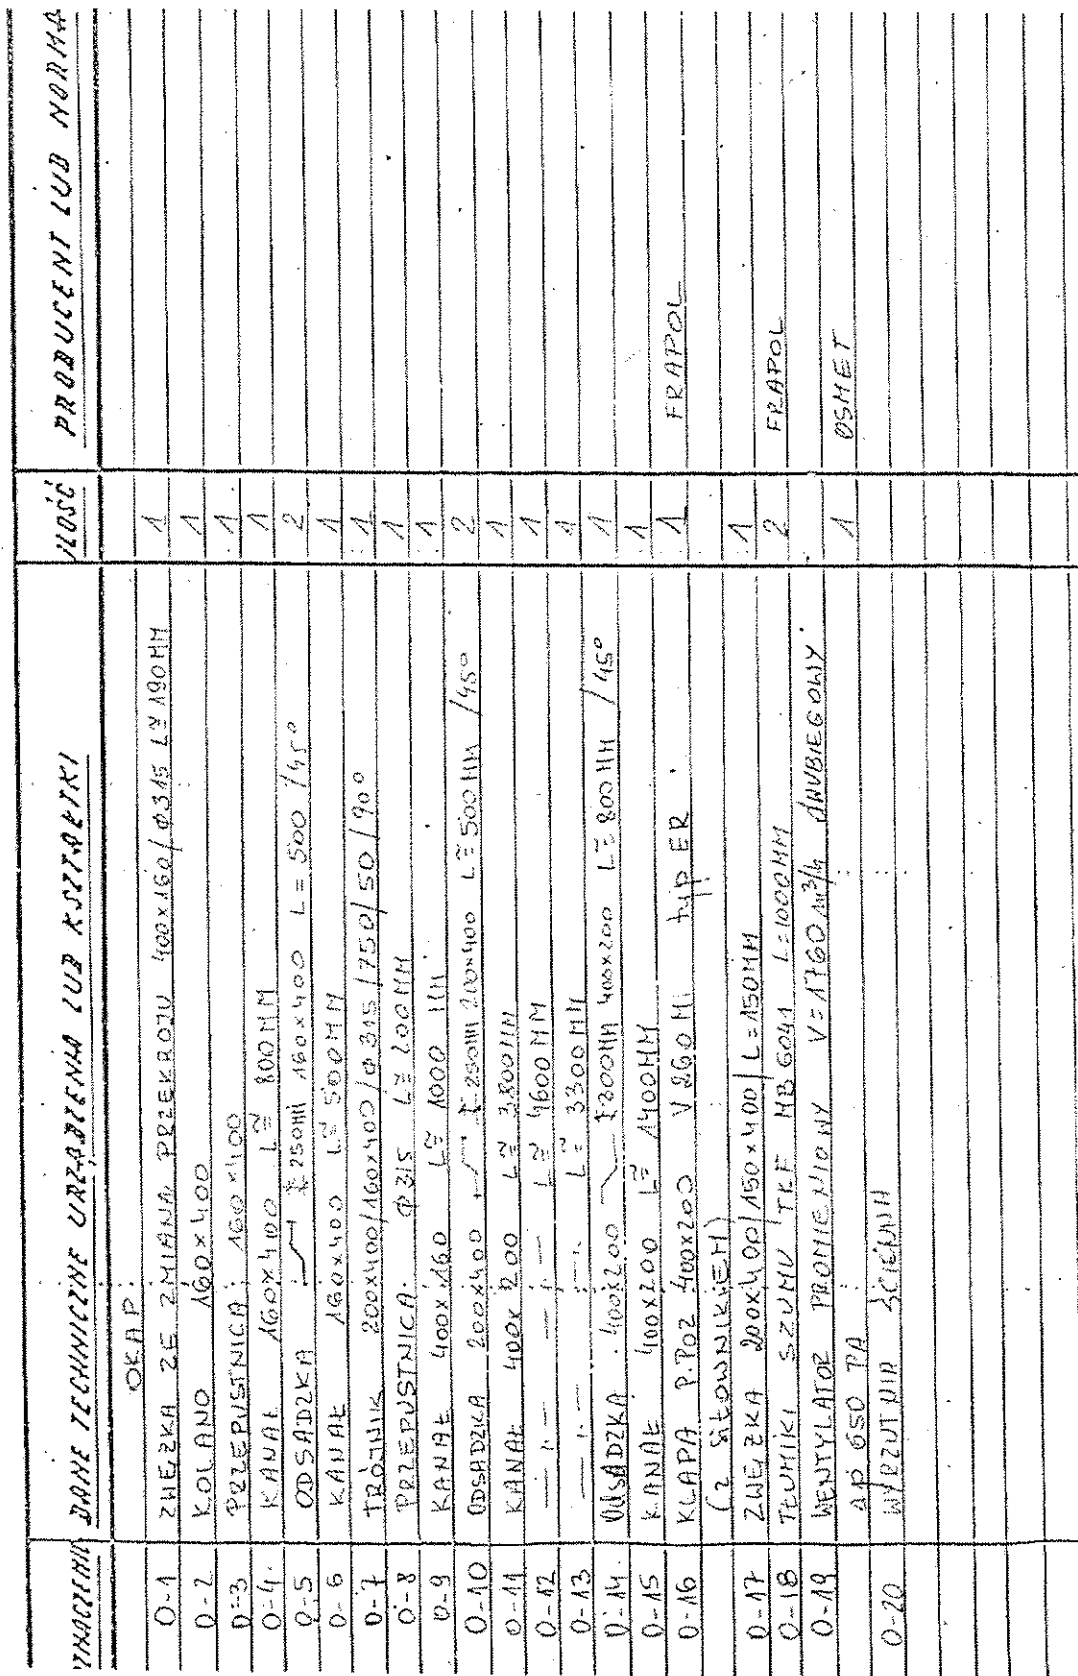 OZNACZENIE DANE TECHNICZNE URZĄDZENIA LUB KSZTAŁTKI ILOŚĆ PRODUCENT LUB NORMA
OKAP
O-1 ZWĘŻKA ZE ZMIANĄ PRZEKROJU 400x160/Φ315 L≅190MM 1
O-2 KOLANO 160x400 1
O-3 PRZEPUSTNICA 160x400 1
O-4 KANAŁ 160x400 L≅ 800MM 1
O-5 ODSADZKA 250MM 160x400 L=500 /45° 2
O-6 KANAŁ 160x400 L≅ 500MM 1
O-7 TRÓJNIK 200x400/160x400/Φ315/750/50/90° 1
O-8 PRZEPUSTNICA Φ315 L≅ 200MM 1
O-9 KANAŁ 400x160 L≅ 1000 MM 1
O-10 ODSADZKA 200x400 250MM 200x400 L≅500MM /45° 2
O-11 KANAŁ 400x200 L≅ 3800MM 1
O-12 —"— —"— L≅ 4600MM 1
O-13 —"— —"— L≅ 3300MM 1
O-14 ODSADZKA 400x200 200MM 400x200 L≅ 800MM /45° 1
O-15 KANAŁ 400x200 L≅ 1400MM 1
O-16 KLAPA P.POŻ 400x200 V260M typ ER 1 FRAPOL
(z SIŁOWNIKIEM)
O-17 ZWĘŻKA 200x400/150x400/L=150MM 1
O-18 TŁUMIKI SZUMU TKF MB 6041 L=1000MM 2 FRAPOL
O-19 WENTYLATOR PROMIENIOWY V=1760 m³/h DWUBIEGOWY 1 OSMET
Δp 650 PA
O-20 WYRZUTNIA ŚCIENNA